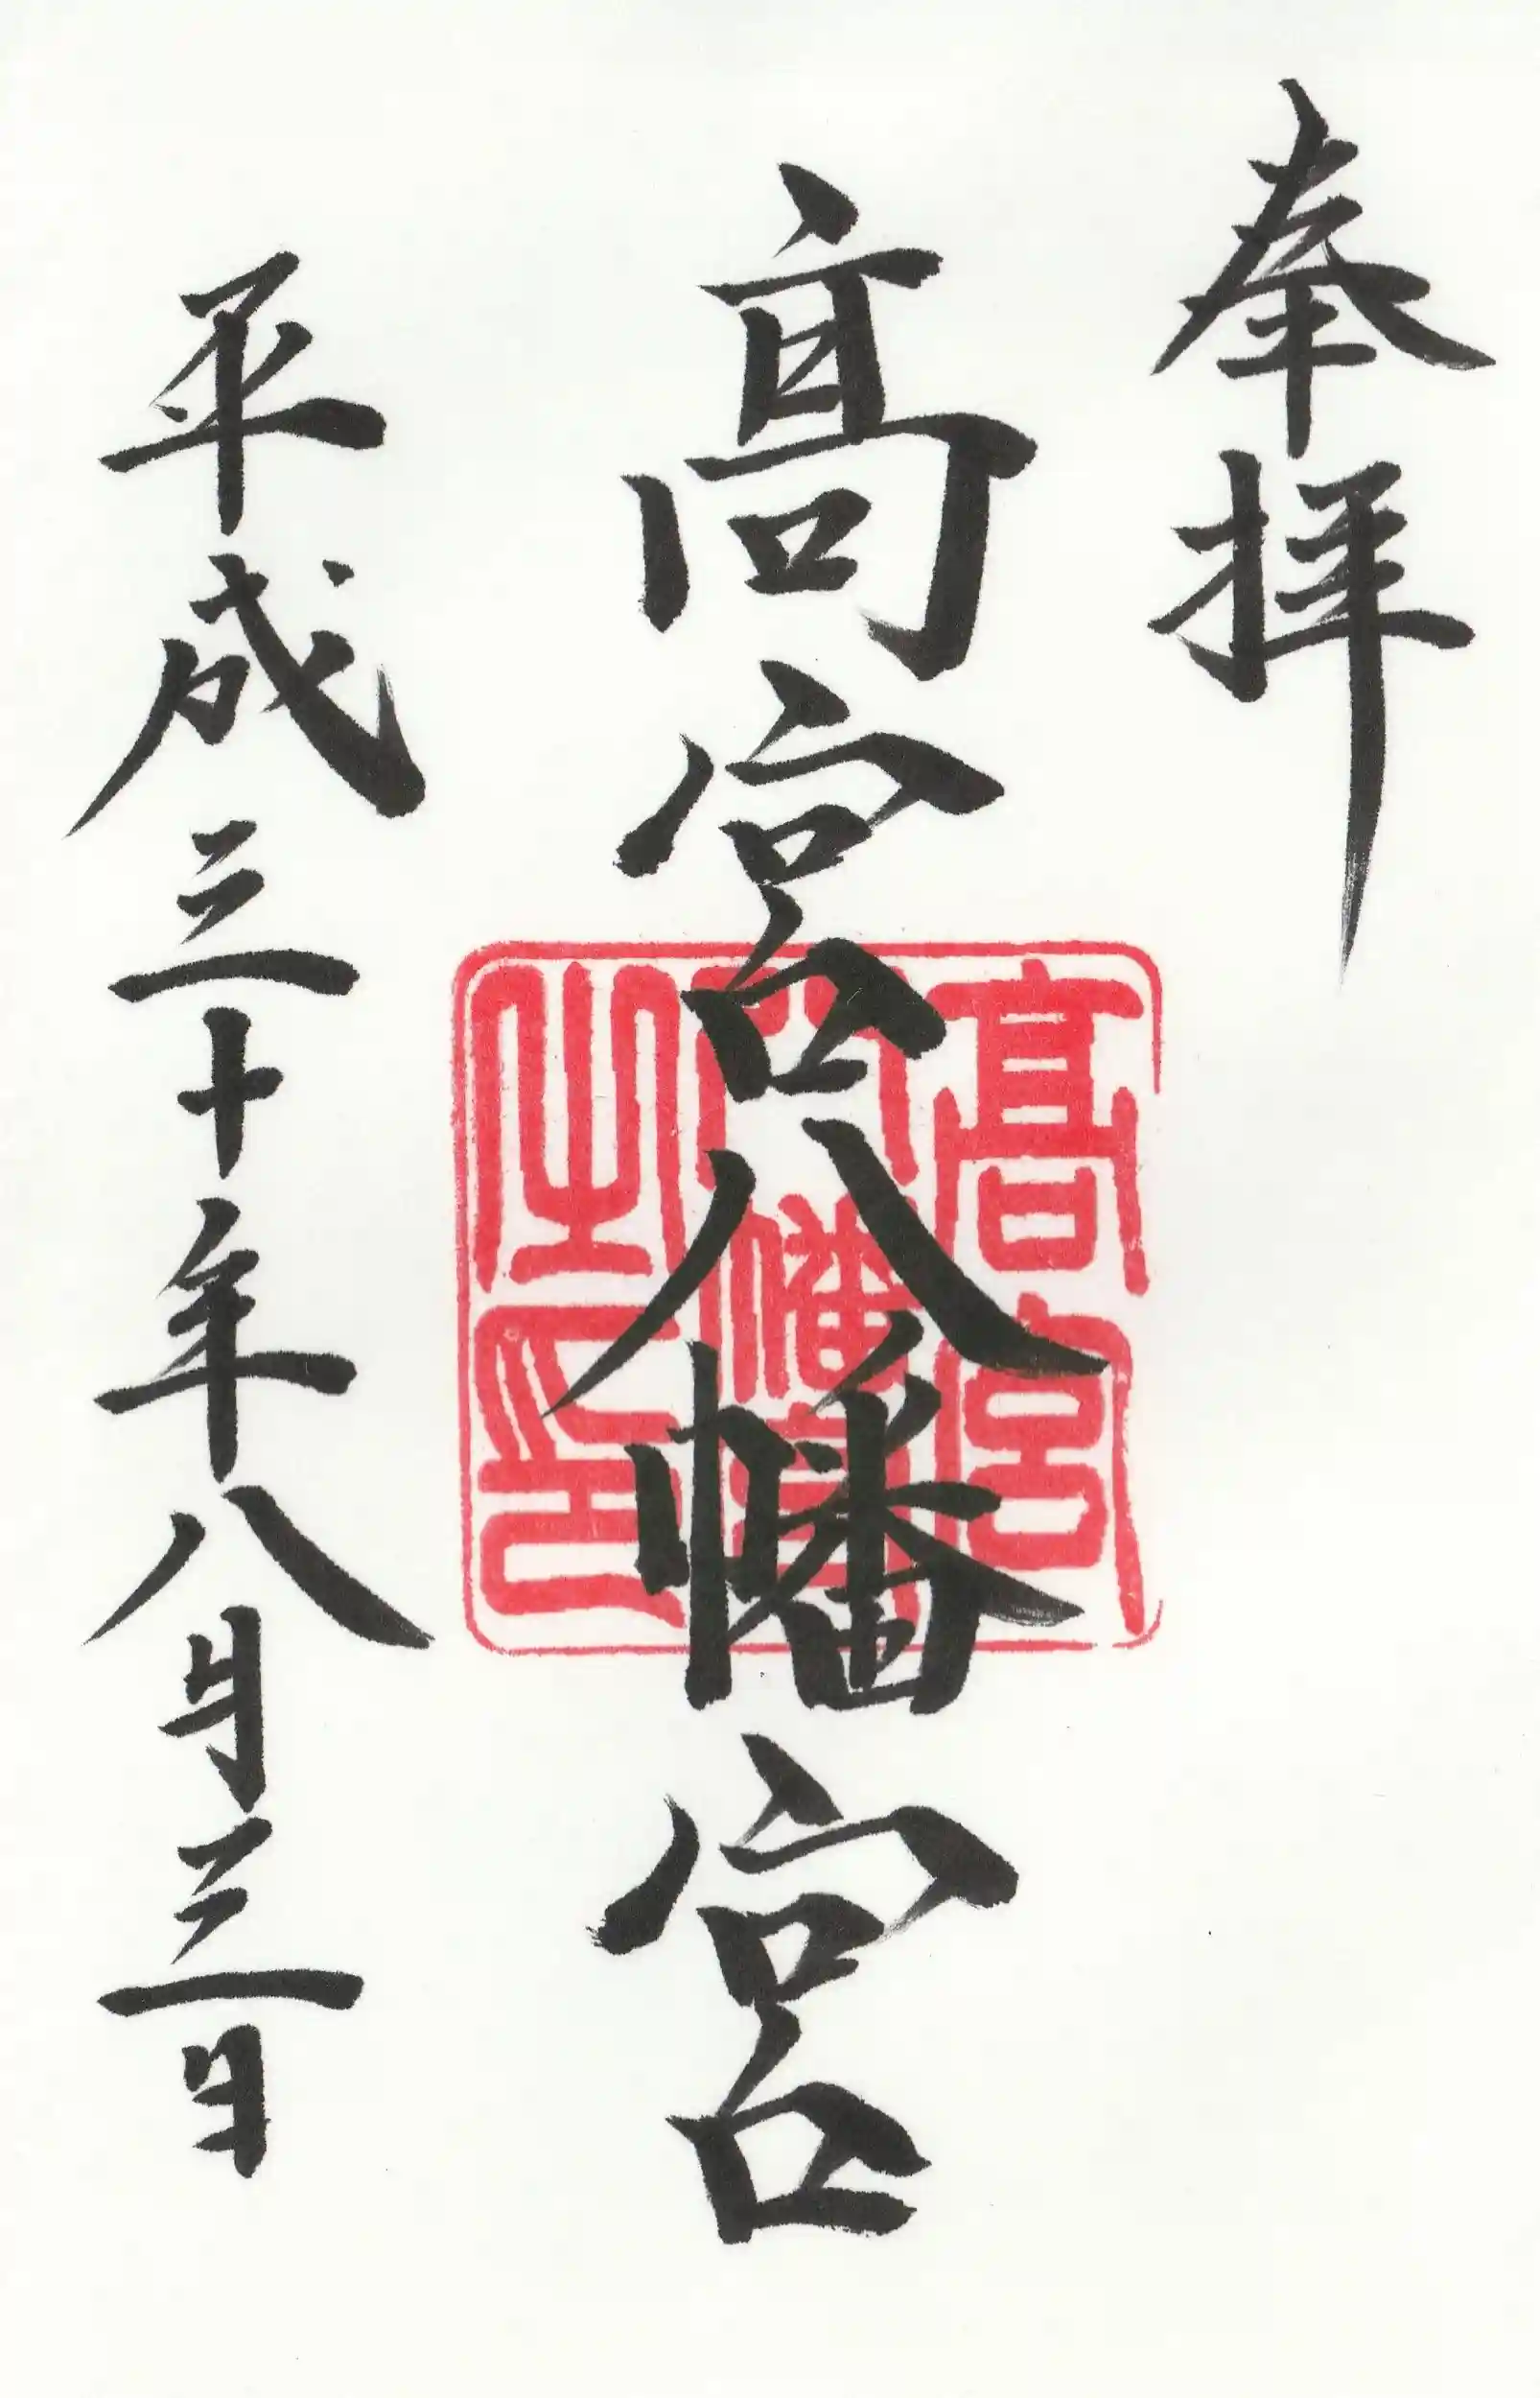 奉拝
髙宮八幡宮
髙宮
八幡宮
之印
平成三十年八月三日